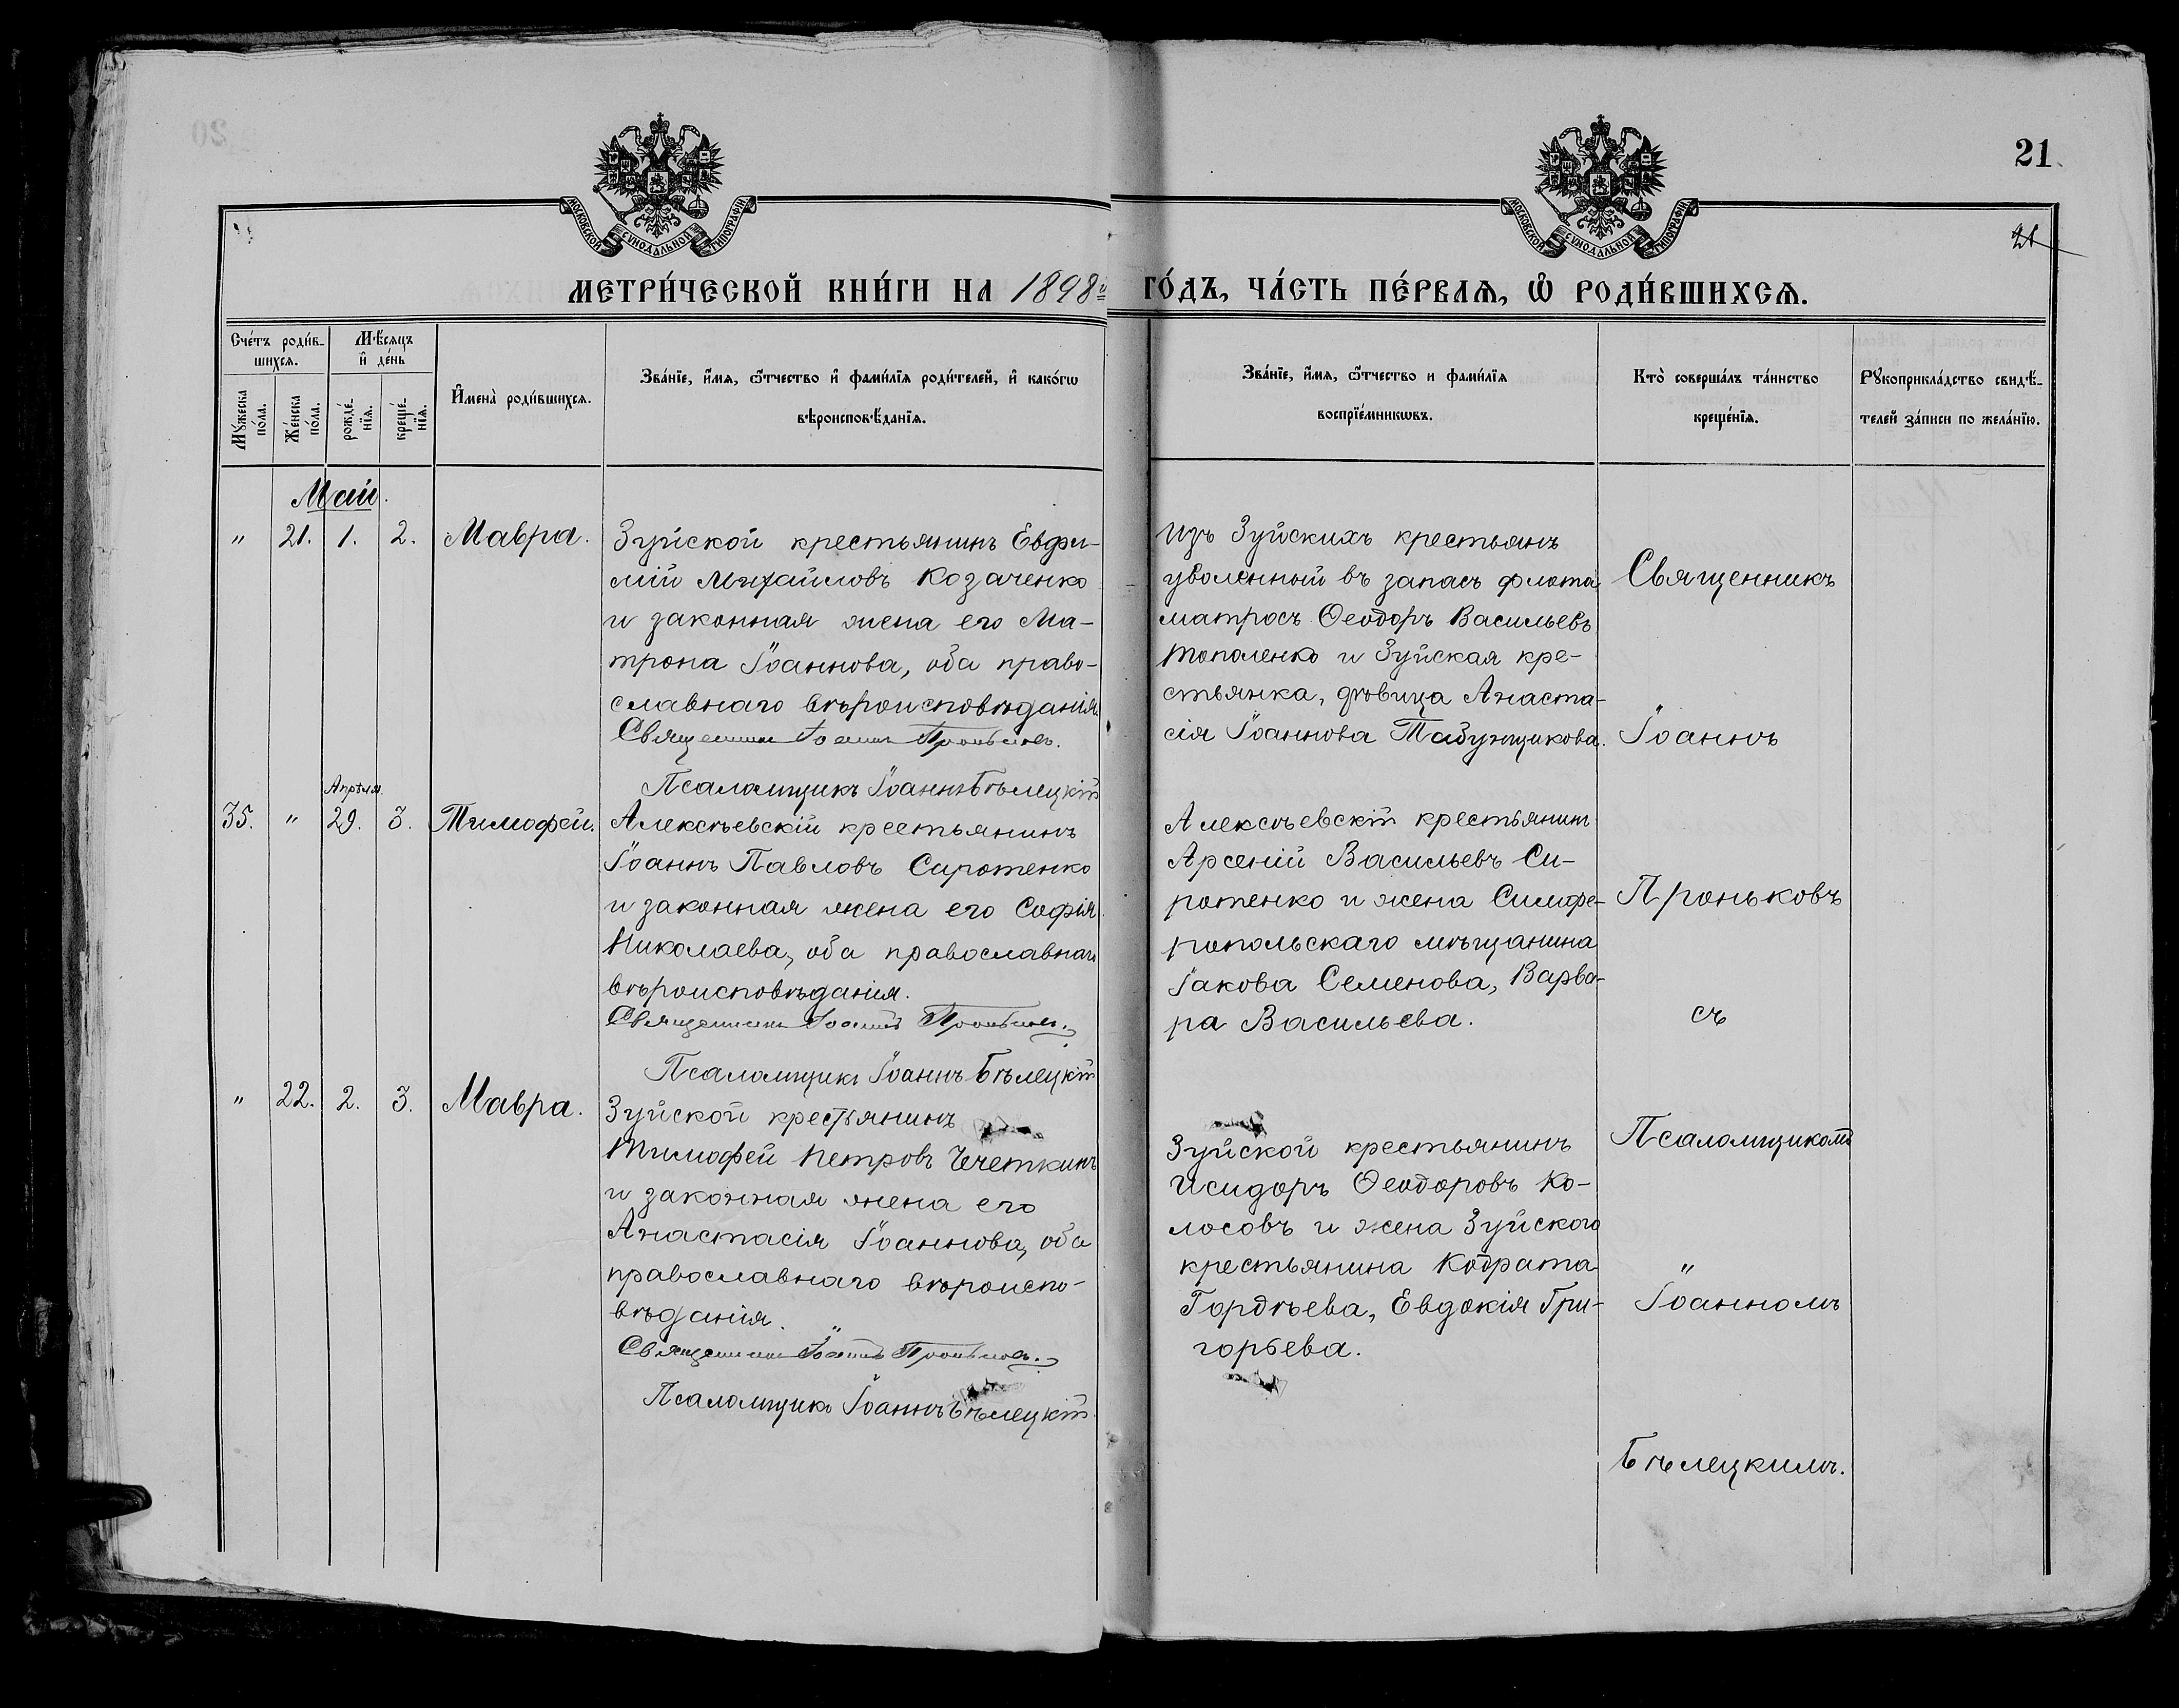 21
21
МОСКОВСКОЙ СѴНОДАЛЬНОЙ ТИПОГРАФІИ
МОСКОВСКОЙ СѴНОДАЛЬНОЙ ТИПОГРАФІИ
МЕТРИ́ЧЕСКОЙ КНИ́ГИ НА 1898й ГО́ДЪ, ЧА́СТЬ ПЕ́РВАѦ, Ѡ҆ РОДИ́ВШИХСѦ.
Сче́тъ роди́в-
шихсѧ.
Мꙋ́жеска по́ла.
Же́нска по́ла.
Мѣ́сяцъ и҆ де́нь
рожде́-
нїѧ.
креще́-
нїѧ.
И҆мена̀ роди́вшихсѧ.
Зва́нїе, и҆́мѧ, ѻ҆́тчество и҆ фами́лїѧ роди́телей, и҆ како́гѡ
вѣроисповѣ́данїѧ.
Зва́нїе, и҆́мѧ, ѻ҆́тчество и фами́лїѧ
воспрїе́мникѡвъ.
Кто̀ соверша́лъ та́инство
креще́нїѧ.
Рꙋкоприкла́дство свидѣ́-
телей за́писи по жела́нїю.
Май.
" 21. 1. 2. Мавра.
Зуйской крестьянинъ Евфи-
мій Михайловъ Козаченко
и законная жена его Ма-
трона Іоаннова, оба право-
славнаго вѣроисповѣданія.
Священникъ Іоаннъ Проньковъ.
Псаломщикъ Іоаннъ Бѣлецкій
Изъ Зуйскихъ крестьянъ
уволенный въ запасъ флота
матросъ Ѳеодоръ Васильевъ
Тополенко и Зуйская кре-
стьянка, дѣвица Анаста-
сія Іоаннова Табунщикова.
35. " Апрѣля 29. 3. Тимофей.
Алексѣевскій крестьянинъ
Іоаннъ Павловъ Сиротенко
и законная жена его Софія
Николаева, оба православнаго
вѣроисповѣданія.
Священникъ Іоаннъ Проньковъ.
Псаломщикъ Іоаннъ Бѣлецкій
Алексѣевскій крестьянинъ
Арсеній Васильевъ Си-
ротенко и жена Симфе-
ропольскаго мѣщанина
Іакова Семенова, Варва-
ра Васильева.
" 22. 2. 3. Мавра.
Зуйской крестьянинъ
Тимофей Петровъ Чечеткинъ
и законная жена его
Анастасія Іоаннова, оба
православнаго вѣроиспо-
вѣданія.
Священникъ Іоаннъ Проньковъ.
Псаломщикъ Іоаннъ Бѣлецкій
Зуйской крестьянинъ
Исидоръ Ѳеодоровъ Ко-
лосовъ и жена Зуйского
крестьянина Кодрата
Гордѣева, Евдокія Гри-
горьева.
Священникъ
Іоаннъ
Проньковъ
съ
Псаломщикомъ
Іоанномъ
Бѣлецкимъ.